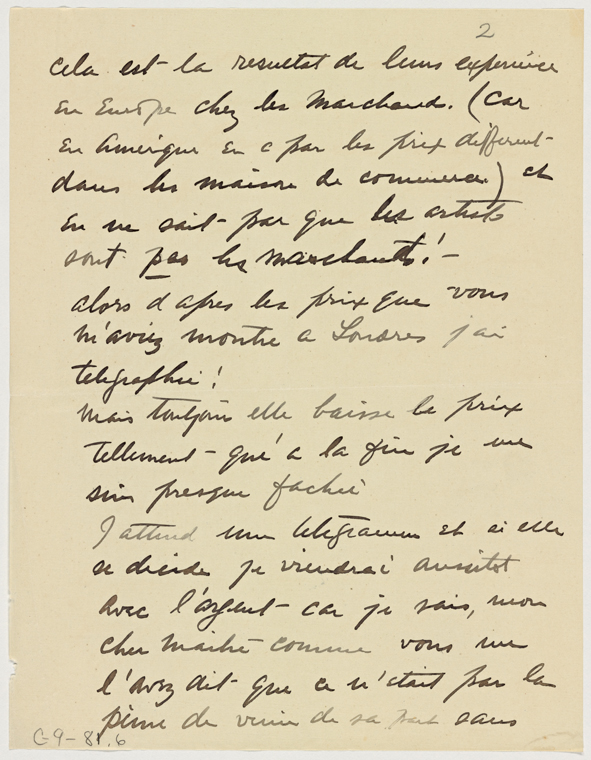 2
cela est la resultat de leurs experience
en Europe chez les Marchands. (Car
en Amerique en c par les prix different
dans les maison de commerce) et
en ne sait par que les artists
sont pas les marchants! -
alors d apres les prix que vous
m'aviez montre a Londres j ai
telegraphié!
Mais toujour elle baisse le prix
tellement - qué a la fin je me
suis presque faché
J attend une telegramme et si elle
se decide je viendrai aussitot
avec l'argent - car je sais, mon
cher maitre comme vous me
l'avez dit que ce n'etait par la
peine de venir de sa part sans
G-9-81.6